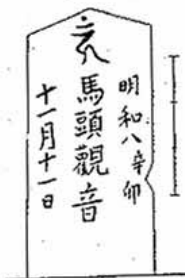 明和八辛卯
馬頭觀音
十一月十一日